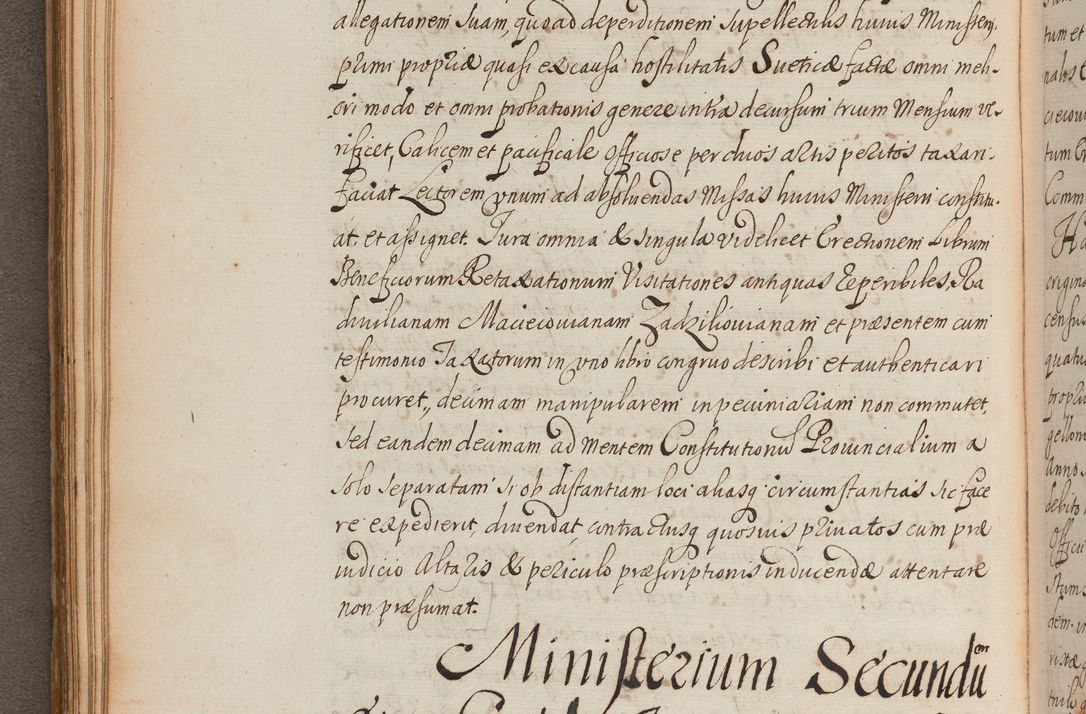 allegationem suam, quoad deperditionem supellectilis huius Ministerii
primi propriæ quasi ex causa hostilitatis Sueticæ factæ omni meli-
ori modo et omni probationis genere intra decursum trium Mensium ve-
rificet, Calicem et pacificale officiose per duos artis peritos taxari
faciat Lectorem vnum ad absoluendas Missas huius Ministerii constitu-
at. et assignet. Iura omnia & singula videlicet Erectionem Librum
Beneficiorum Retaxationum Visitationes antiquas Reperibiles, Ra
diuilianam Macieiouianam Zadzikouianam et præsentem cum
testimonio Taxatorum in vno libro congruo describi et authenticari
procuret, decimam manipularem in pecuniariam non commutet,
sed eandem decimam ad mentem Constitutionū Prouincialium a
solo separatam si ob distantiam loci aliasq circumstantias sic face
re expedierit, diuendat, contractusq quosuis priuatos cum præ
iudicio Altaris & periculo præscriptionis inducendæ attentare
non præsumat.
Ministerium Secundū